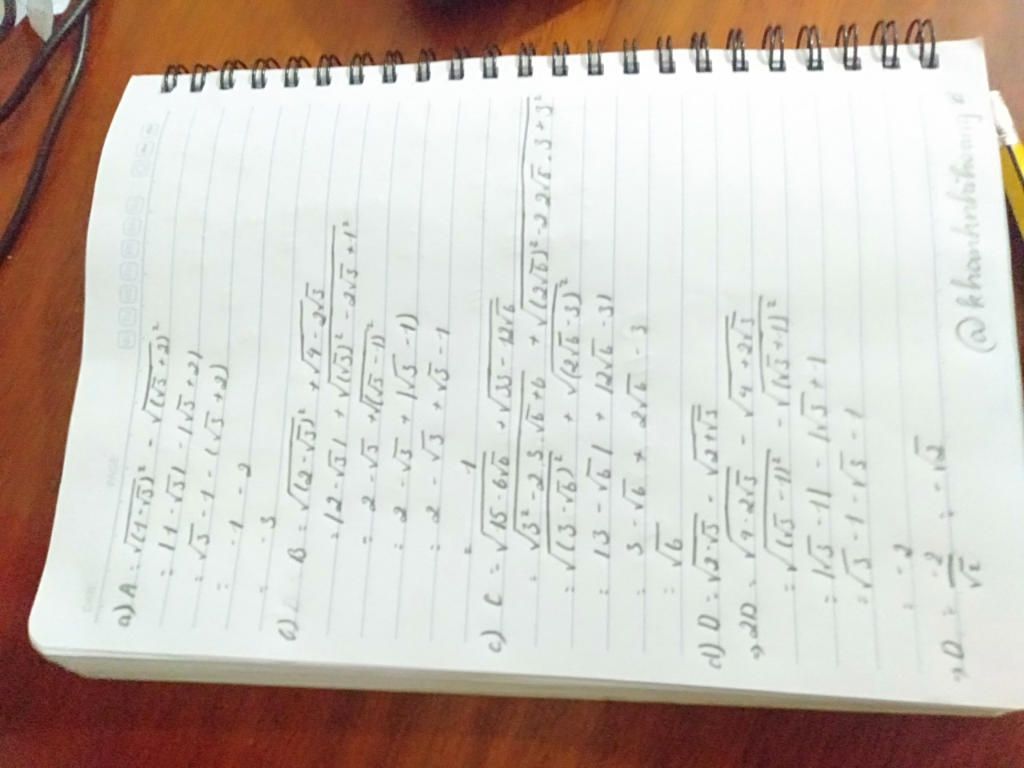 PAGE
DATE
a) A = √(1-√3)² - √(√3+2)²
= |1-√3| - |√3+2|
= √3 - 1 - (√3+2)
= -1 - 2
= -3
B = √(2-√3)² + √4-2√3
= |2-√3| + √(√3)² - 2√3 + 1²
= 2 - √3 + √(√3-1)²
= 2 - √3 + |√3-1|
= 2 - √3 + √3 - 1
= 1
c) C = √15-6√6 + √33-12√6
= √3²-2.3.√6+6 + √(2√6)²-2.2√6.3+3²
= √(3-√6)² + √(2√6-3)²
= |3-√6| + |2√6-3|
= 3 - √6 + 2√6 - 3
= √6
d) D = √2-√3 - √2+√3
⇒ 2D = √4-2√3 - √4+2√3
= √(√3-1)² - √(√3+1)²
= |√3-1| - |√3+1|
= √3 - 1 - √3 - 1
= -2
⇒ D = -2/√2 = -√2